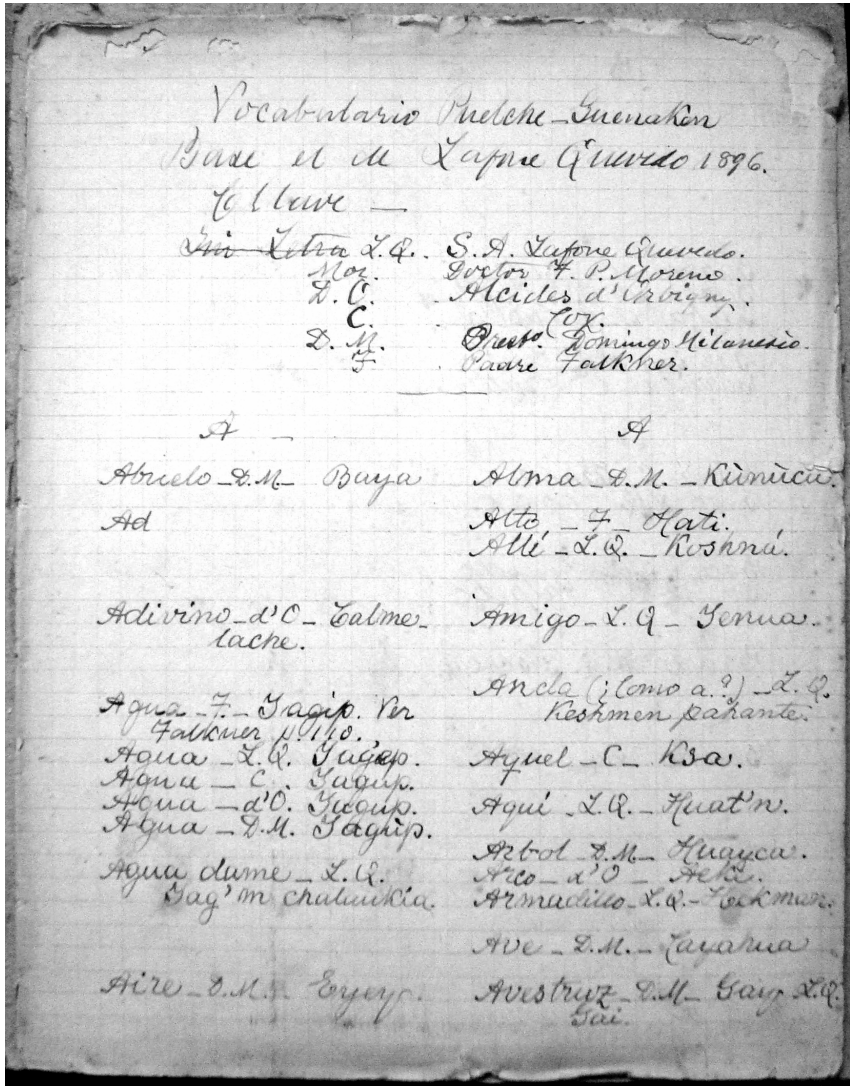 Vocabulario Puelche-Guenaken
Base el de Lafone Quevedo 1896.
Clave —
L.Q. . S. A. Lafone Quevedo.
Mor. Doctor F. P. Moreno.
D.O. . Alcides d'Orbigny.
C. . Cox.
D.M. Presb. Domingo Milanesio.
F . Padre Falkner.
A —
Abuelo - D.M - Baya
Ad
Adivino - d'O - Calme-
lache.
Agua - F. - Yagip. Ver
Falkner p. 110.
Agua - L.Q. Yagup.
Agua - C. Yagup.
Agua - d'O. Yagup.
Agua - D.M. Yagùp.
Agua dame - L.Q.
Yag'm
Aire - D.M. - Eyey.
A
Alma - D.M. - Kùnùcù.
Alto - F - Hati.
Allé - L.Q. - Koshná.
Amigo - L.Q - Yenua.
Anda (¿Como a.?) - L.Q.
Keshmen
Aquel - C - Ksa.
Aquí - L.Q. - Huat'n.
Arbol - D.M - Huayca.
Arco - d'O -
Armadillo - L.Q. - Hekman.
Ave - D.M. -
Avestruz - D.M - Gay L.Q.
Gai.